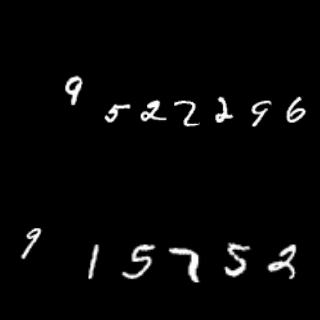 9 522296
9 15752